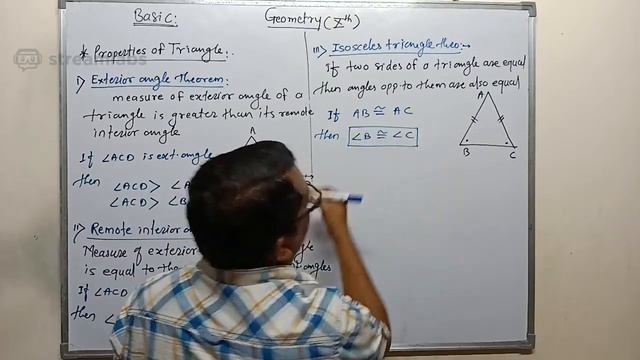 streamlabs
Basic:
Geometry (Zth)
* Properties of Triangle:.
I) Exterior angle Theorem:
measure of exterior angle of a
triangle is greater than its remote
interior angle
If ∠ACD is ext. angle
then ∠ACD > ∠A
∠ACD > ∠B
A
II) Remote interior
Measure of exterior angle
is equal to the angles
If ∠ACD
then ∠
III) Isosceles triangle theo:
If two sides of a triangle are equal
then angles opp to them are also equal
If AB ≅ AC
then ∠B ≅ ∠C
A
B C